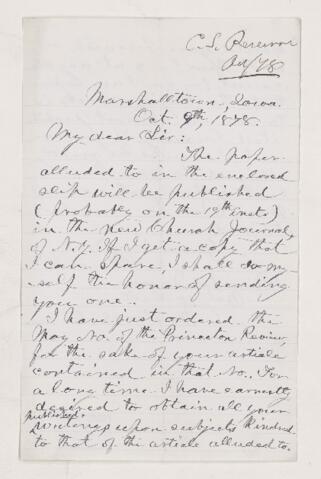 C. S. Percival
Oct/78
Marshalltown, Iowa.
Oct. 9th, 1878.
My dear Sir:
The paper
alluded to in the enclosed
slip will be published
(probably on the 19th inst.)
in the New Church Journal,
of N.Y. If I get a copy that
I can spare, I shall do my-
self the honor of sending
you one.
I have just ordered the
May No. of the Princeton Review,
for the sake of your article
contained in that No. For
a long time I have earnestly
desired to obtain all your
published
writings upon subjects kindred
to that of the article alluded to.